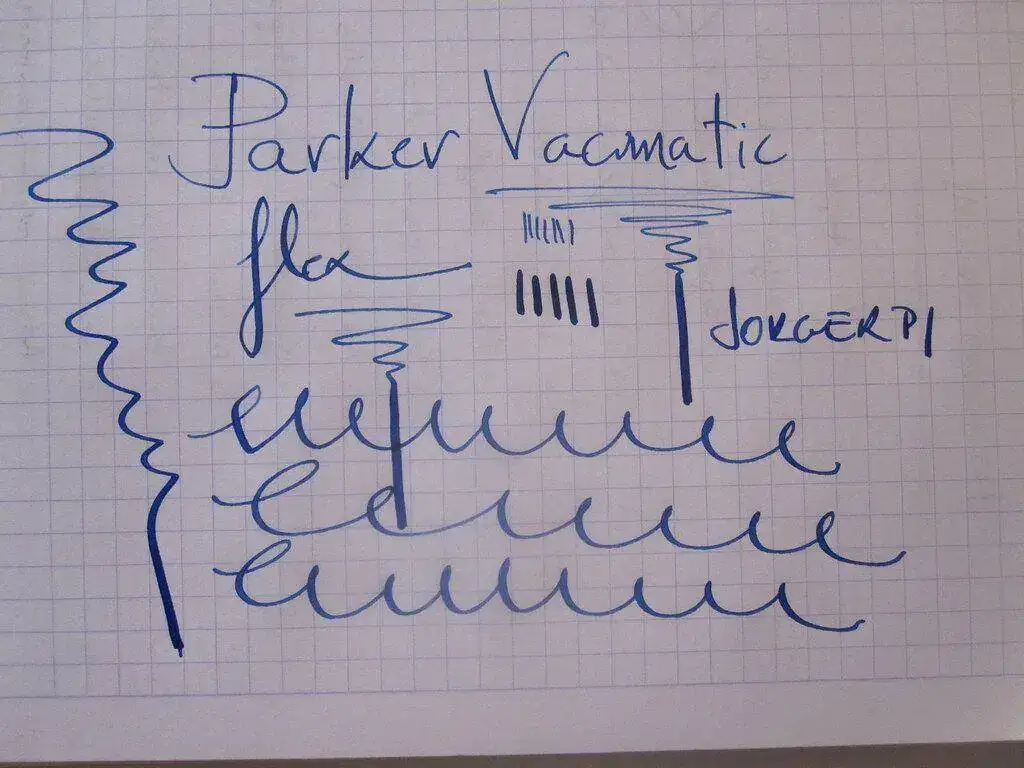 Parker Vacmatic
flex
JORGERPI